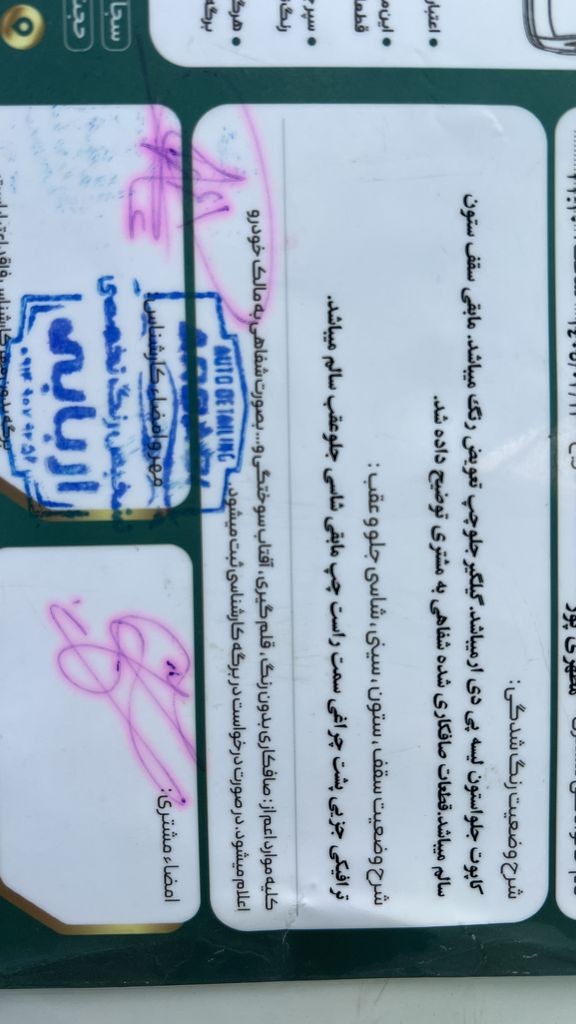 • اعتبار
• این م
قطعا
• سپر
رنگ
• هرگ
برگه
شرح وضعیت رنگ شدگی:
کاپوت جلواستون لیسه پی دی ارمیباشد. گیلگیر جلوچپ تعویض رنگ میباشد. مابقی سقف ستون
سالم میباشد.قطعات صافکاری شده شفاهی به مشتری توضیح داده شد.
شرح وضعیت سقف، ستون، سینی، شاسی جلو و عقب:
ترافیکی جزیی پشت چراغی سمت راست چپ مابقی شاسی جلوعقب سالم میباشد.
کلیه موارد اعم از: صافکاری بدون رنگ، قلم گیری، آفتاب سوختگی و... بصورت شفاهی به مالک خودرو
اعلام میشود. در صورت درخواست در برگه کارشناسی ثبت میشود.
مهر و امضاء کارشناس:
AUTO DETAILING
تشخیص رنگ تخصصی
اربابی
امضاء مشتری: